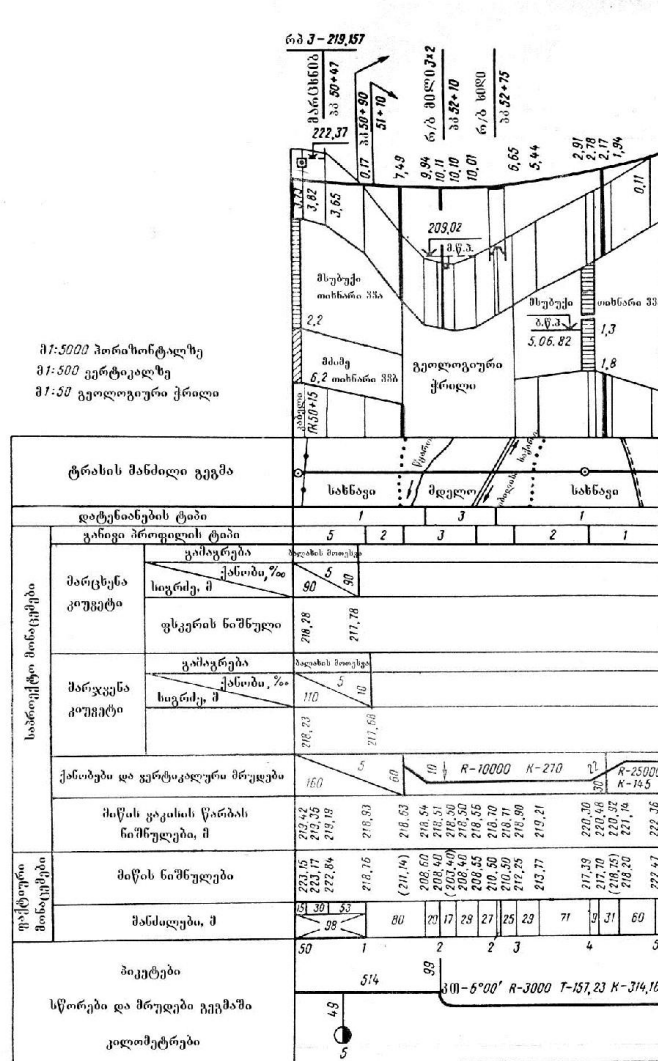 რპ 3-219,157
მარცხნივ
პკ 50+47
222,37
პკ 50+90
51+10
რ/ბ მილი 3×2
პკ 52+10
რ/ბ ხიდი
პკ 52+75
0,17
7,49
9,94
10,11
10,10
10,01
6,65
5,44
2,91
2,78
2,17
1,94
0,11
3,82
3,65
209,02
მ.წ.ჰ.
მსუბუქი
თიხნარი ჰჰა
2,2
მძიმე
6,2 თიხნარი ჰჰბ
გეოლოგიური
ჭრილი
მსუბუქი თიხნარი ჰჰ
გ.წ.ჰ
5.06.82
1,3
1,8
მ1:5000 ჰორიზონტალზე
მ1:500 ვერტიკალზე
მ1:50 გეოლოგიური ჭრილი
კაბელი
ПК50+15
ტრასის მანძილი გეგმა
სახნავი
მდელო
სახნავი
დატენიანების ტიპი 1 3 1
განივი პროფილის ტიპი 5 2 3 2 1
საპროექტო მონაცემები
მარცხენა
კიუვეტი
გამაგრება ბალახის მოთესვა
ქანობი,‰ 5
სიგრძე, მ 90 90
ფსკერის ნიშნული 218,28 217,78
მარჯვენა
კიუვეტი
გამაგრება ბალახის მოთესვა
ქანობი,‰ 5
სიგრძე, მ 110 10
218,23 217,68
ქანობები და ვერტიკალური მრუდები 160 5 60 10 R-10000 K-270 22 30 R-25000
K-145
მიწის ვაკისის წარბას
ნიშნულები, მ
219,42 219,35 219,19 218,93 218,63 218,54 218,51 218,50 218,50 218,56 218,70 218,71 218,90 219,21 220,30 220,48 220,92 221,14 222,36
ფაქტიური
მონაცემები
მიწის ნიშნულები
223,15 223,17 222,84 218,76 (211,14) 208,60 208,40 (203,40) 208,40 208,55 210,50 210,50 212,25 213,77 217,39 217,70 (218,75) 218,20 222,47
მანძილები, მ 15 30 53 98 80 29 17 29 27 25 29 71 9 31 60
პიკეტები 50 1 2 2 3 4 5
სწორები და მრუდები გეგმაში 514 99 კთ-6°00′ R-3000 T-157,23 K-314,16
კილომეტრები 49 5